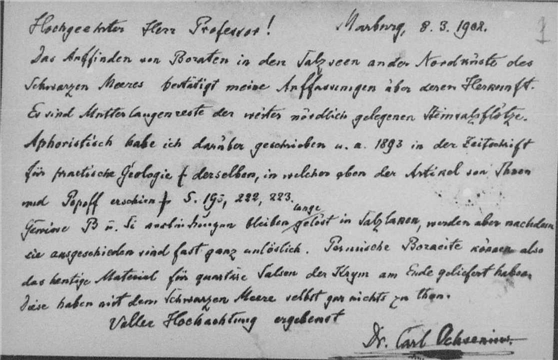 Hochgeehrter Herr Professor! Marburg, 8. 3. 1908.
Das Auffinden von Boraten in den Salzseen an der Nordküste des
Schwarzen Meeres bestätigt meine Auffassungen über deren Herkunft.
Es sind Mutterlaugenreste der weiter nördlich gelegenen Steinsalzflötze.
Aphoristisch habe ich darüber geschrieben u. a. 1893 in der Zeitschrift
für practische Geologie derselben, in welcher oben der Artikel von Ihnen
und Popoff erschien S. 195, 222, 223.
Gewisse B u. Si bleiben lange gelöst in Salzlaken, werden aber nachdem
sie ausgeschieden sind fast ganz unlöslich. Permische Boracite können also
das heutige Material für quartäre Salsen der Krym am Ende geliefert haben.
diese haben mit dem Schwarzen Meere selbst gar nichts zu thun.
Voller Hochachtung ergebenst
Dr. Carl Ochsenius.